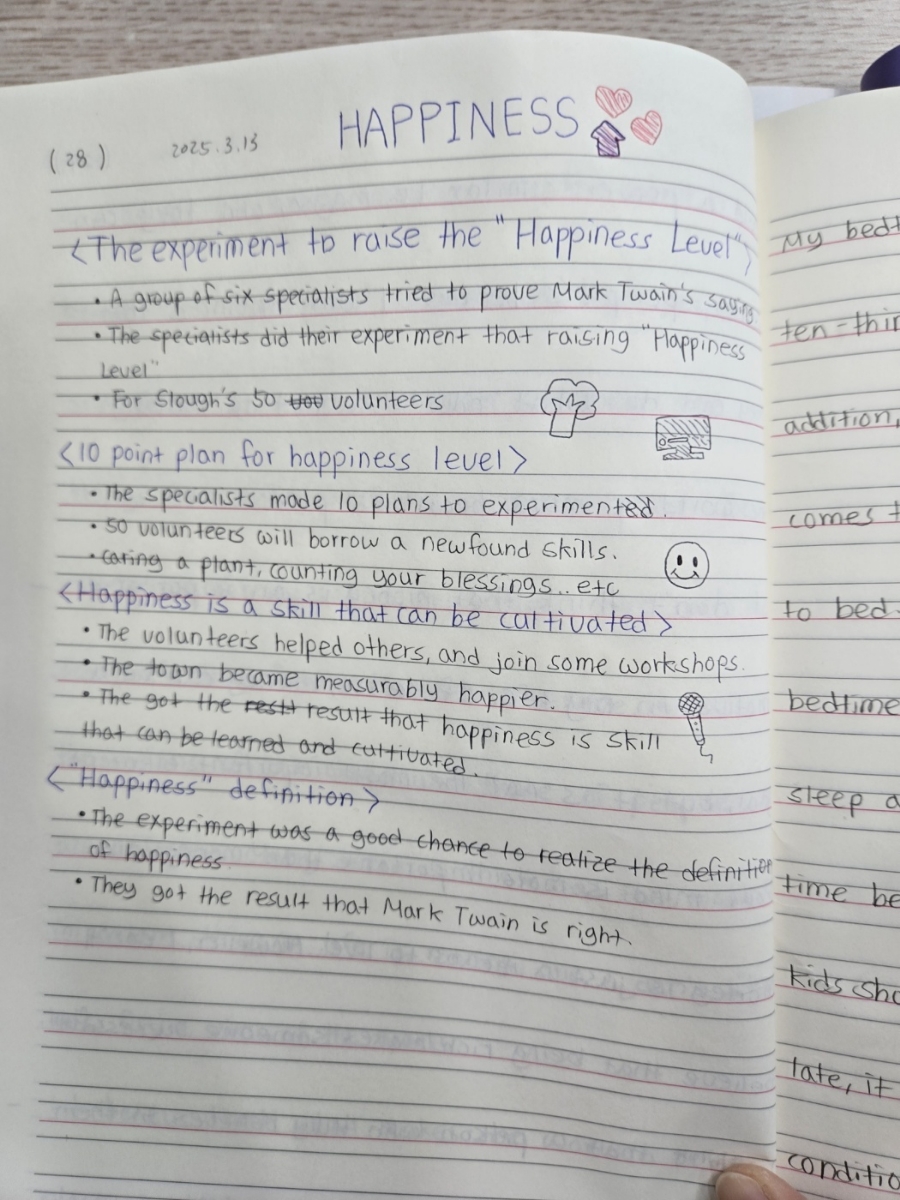 HAPPINESS
(28) 2025.3.13
<The experiment to raise the "Happiness Level">
• A group of six specialists tried to prove Mark Twain's saying.
• The specialists did their experiment that raising "Happiness
Level"
• For Slough's 50 volunteers
<10 point plan for happiness level>
• The specialists made 10 plans to experimented.
• 50 volunteers will borrow a newfound skills.
• Caring a plant, counting your blessings.. etc
<Happiness is a skill that can be cultivated>
• The volunteers helped others, and join some workshops.
• The town became measurably happier.
• The got the result that happiness is skill
that can be learned and cultivated.
<"Happiness" definition>
• The experiment was a good chance to realize the definition
of happiness.
• They got the result that Mark Twain is right.
My bedt
ten-thir
addition,
comes t
to bed.
bedtime
sleep a
time be
kids sho
late, it
conditio